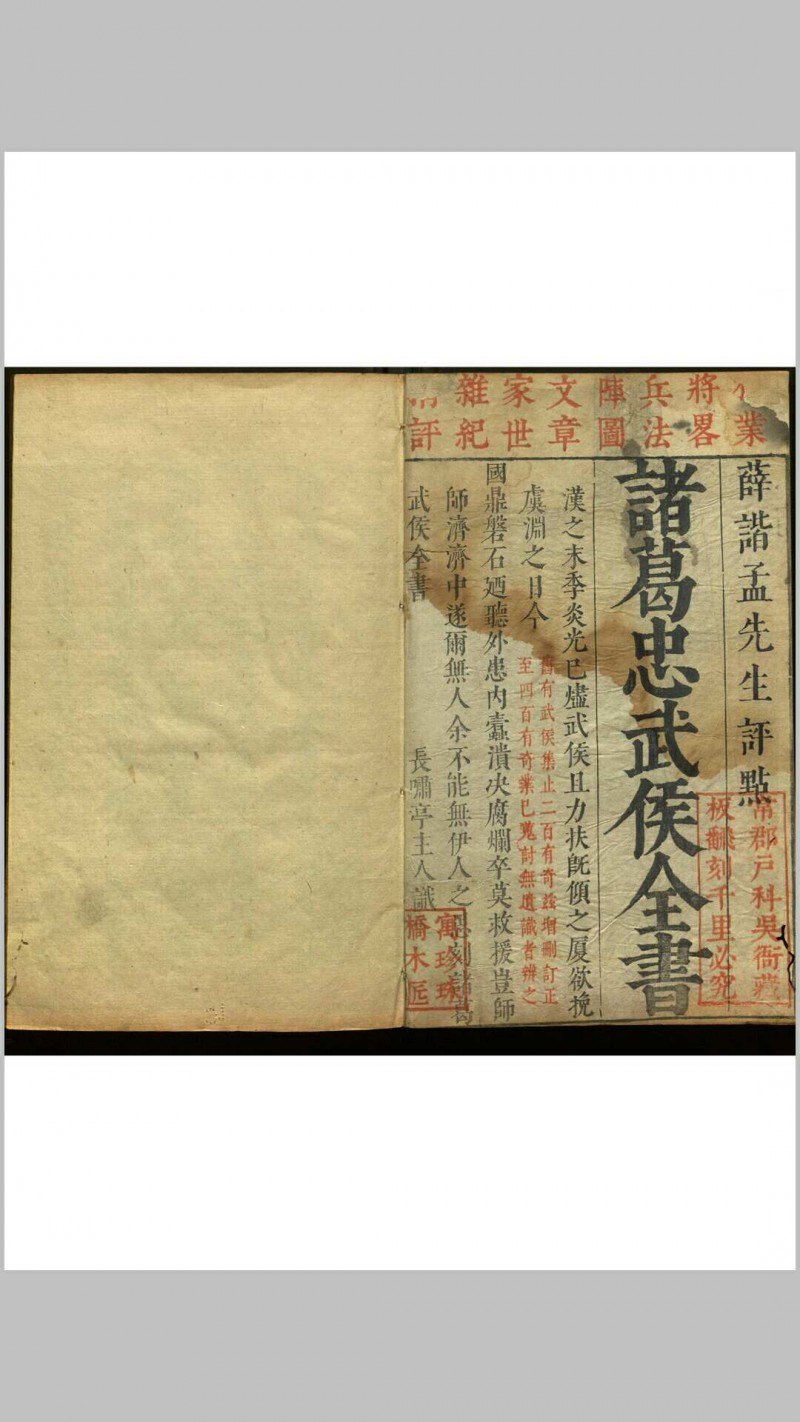 業
將畧
兵法
陣圖
文章
家世
雜紀
評
薛諧孟先生評點
諸葛忠武侯全書
漢之末季炎光已燼武侯且力扶旣傾之厦欲挽
虞淵之日今
舊有武侯集止二百有奇玆增刪訂正
至四百有奇業已蒐討無遺識者辨之
國鼎磐石廼聽外患內蠹潰决腐爛卒莫救援豈師
師濟濟中遂爾無人余不能無伊人之思刻諸葛
武侯全書
長嘯亭主人識
常郡戸科吳衙藏
板翻刻千里必究
寓珍珠
橋木匠